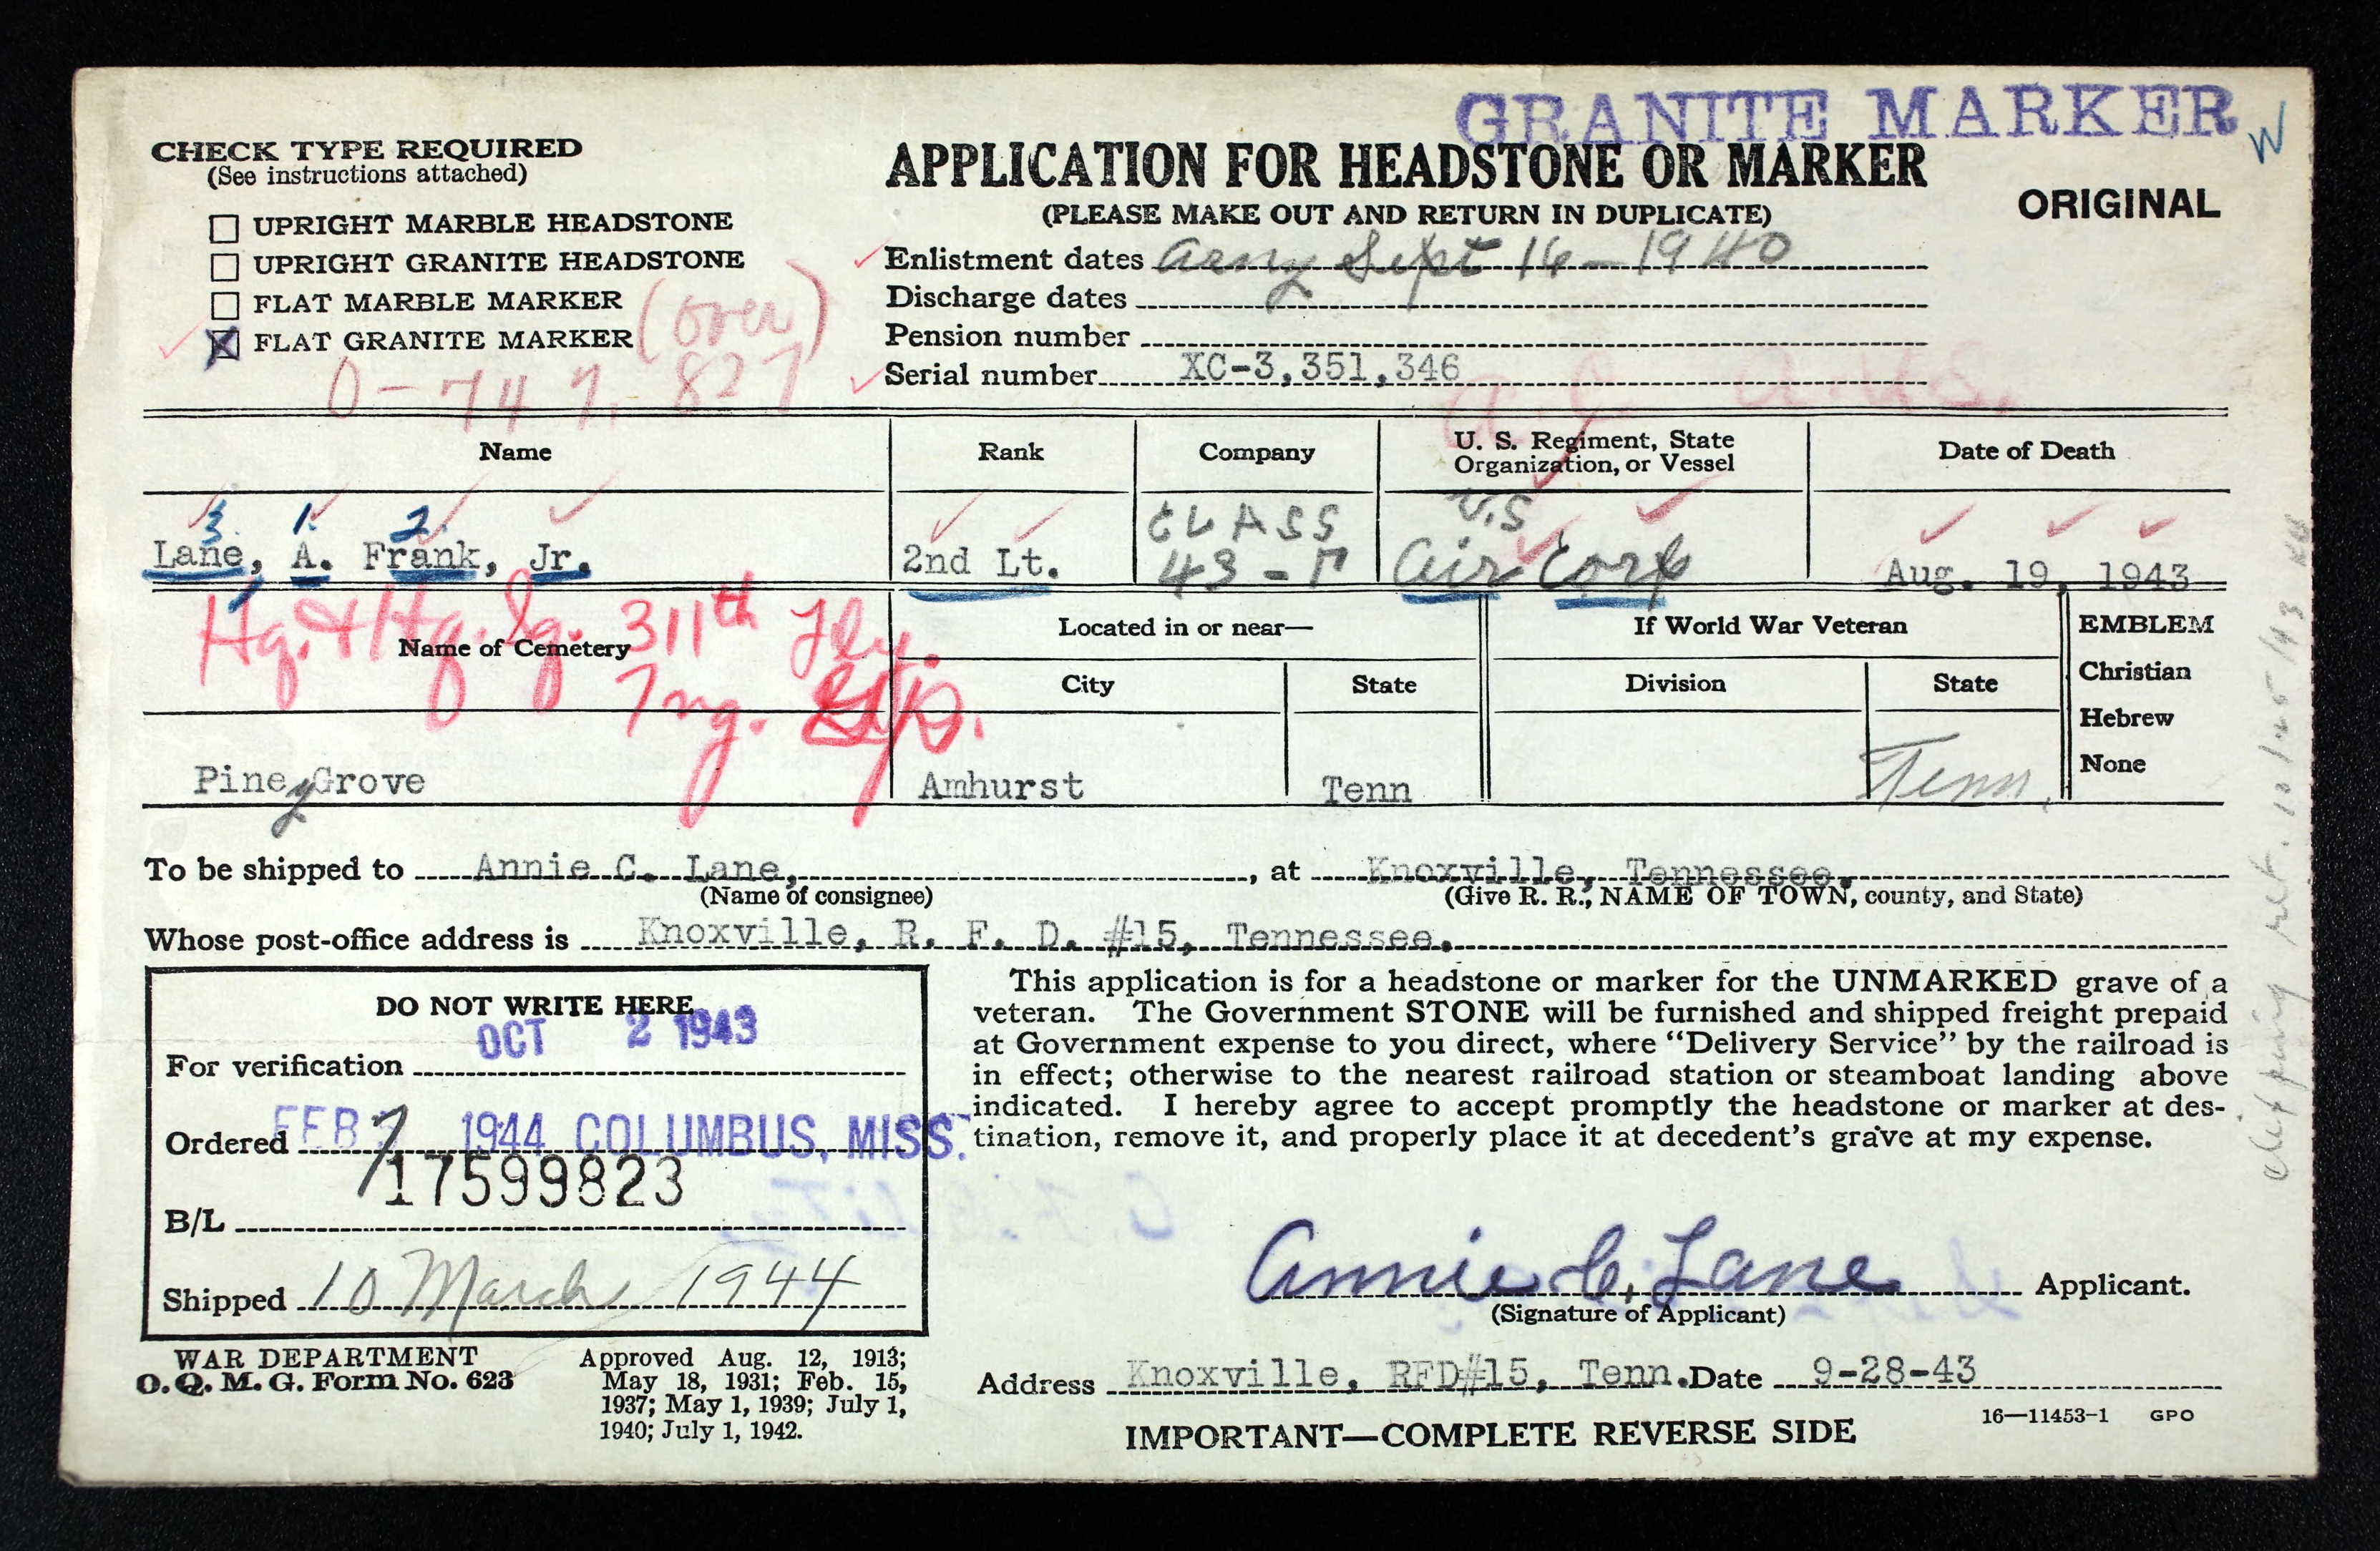 GRANITE MARKER W
CHECK TYPE REQUIRED
(See instructions attached)
UPRIGHT MARBLE HEADSTONE
UPRIGHT GRANITE HEADSTONE
FLAT MARBLE MARKER
X FLAT GRANITE MARKER (over)
0-747,827
APPLICATION FOR HEADSTONE OR MARKER
(PLEASE MAKE OUT AND RETURN IN DUPLICATE)
ORIGINAL
Enlistment dates Army Sept 16-1940
Discharge dates
Pension number
Serial number XC-3,351,346
A.C. A.U.S.
Name Rank Company U. S. Regiment, State Organization, or Vessel Date of Death
3 1. 2.
Lane, A. Frank, Jr. 2nd Lt. CLASS 43- U.S Air Corp Aug. 19, 1943
Hq. & Hq. Sq. 311th Fly. Tng.
Name of Cemetery Located in or near— If World War Veteran EMBLEM
City State Division State Christian
Hebrew
None
Piney Grove Amhurst Tenn Tenn.
To be shipped to Annie C. Lane, , at Knoxville, Tennessee.
(Name of consignee) (Give R. R., NAME OF TOWN, county, and State)
Whose post-office address is Knoxville, R. F. D. #15, Tennessee.
DO NOT WRITE HERE
OCT 2 1943
For verification
Ordered FEB 7 1944 COLUMBUS, MISS.
17599823
B/L
Shipped 10 March 1944
This application is for a headstone or marker for the UNMARKED grave of a
veteran. The Government STONE will be furnished and shipped freight prepaid
at Government expense to you direct, where "Delivery Service" by the railroad is
in effect; otherwise to the nearest railroad station or steamboat landing above
indicated. I hereby agree to accept promptly the headstone or marker at des-
tination, remove it, and properly place it at decedent's grave at my expense.
Annie C. Lane Applicant.
(Signature of Applicant)
Address Knoxville, RFD#15, Tenn. Date 9-28-43
WAR DEPARTMENT
O. Q. M. G. Form No. 623
Approved Aug. 12, 1913;
May 18, 1931; Feb. 15,
1937; May 1, 1939; July 1,
1940; July 1, 1942.
IMPORTANT—COMPLETE REVERSE SIDE
16—11453-1 GPO
clipping ret.